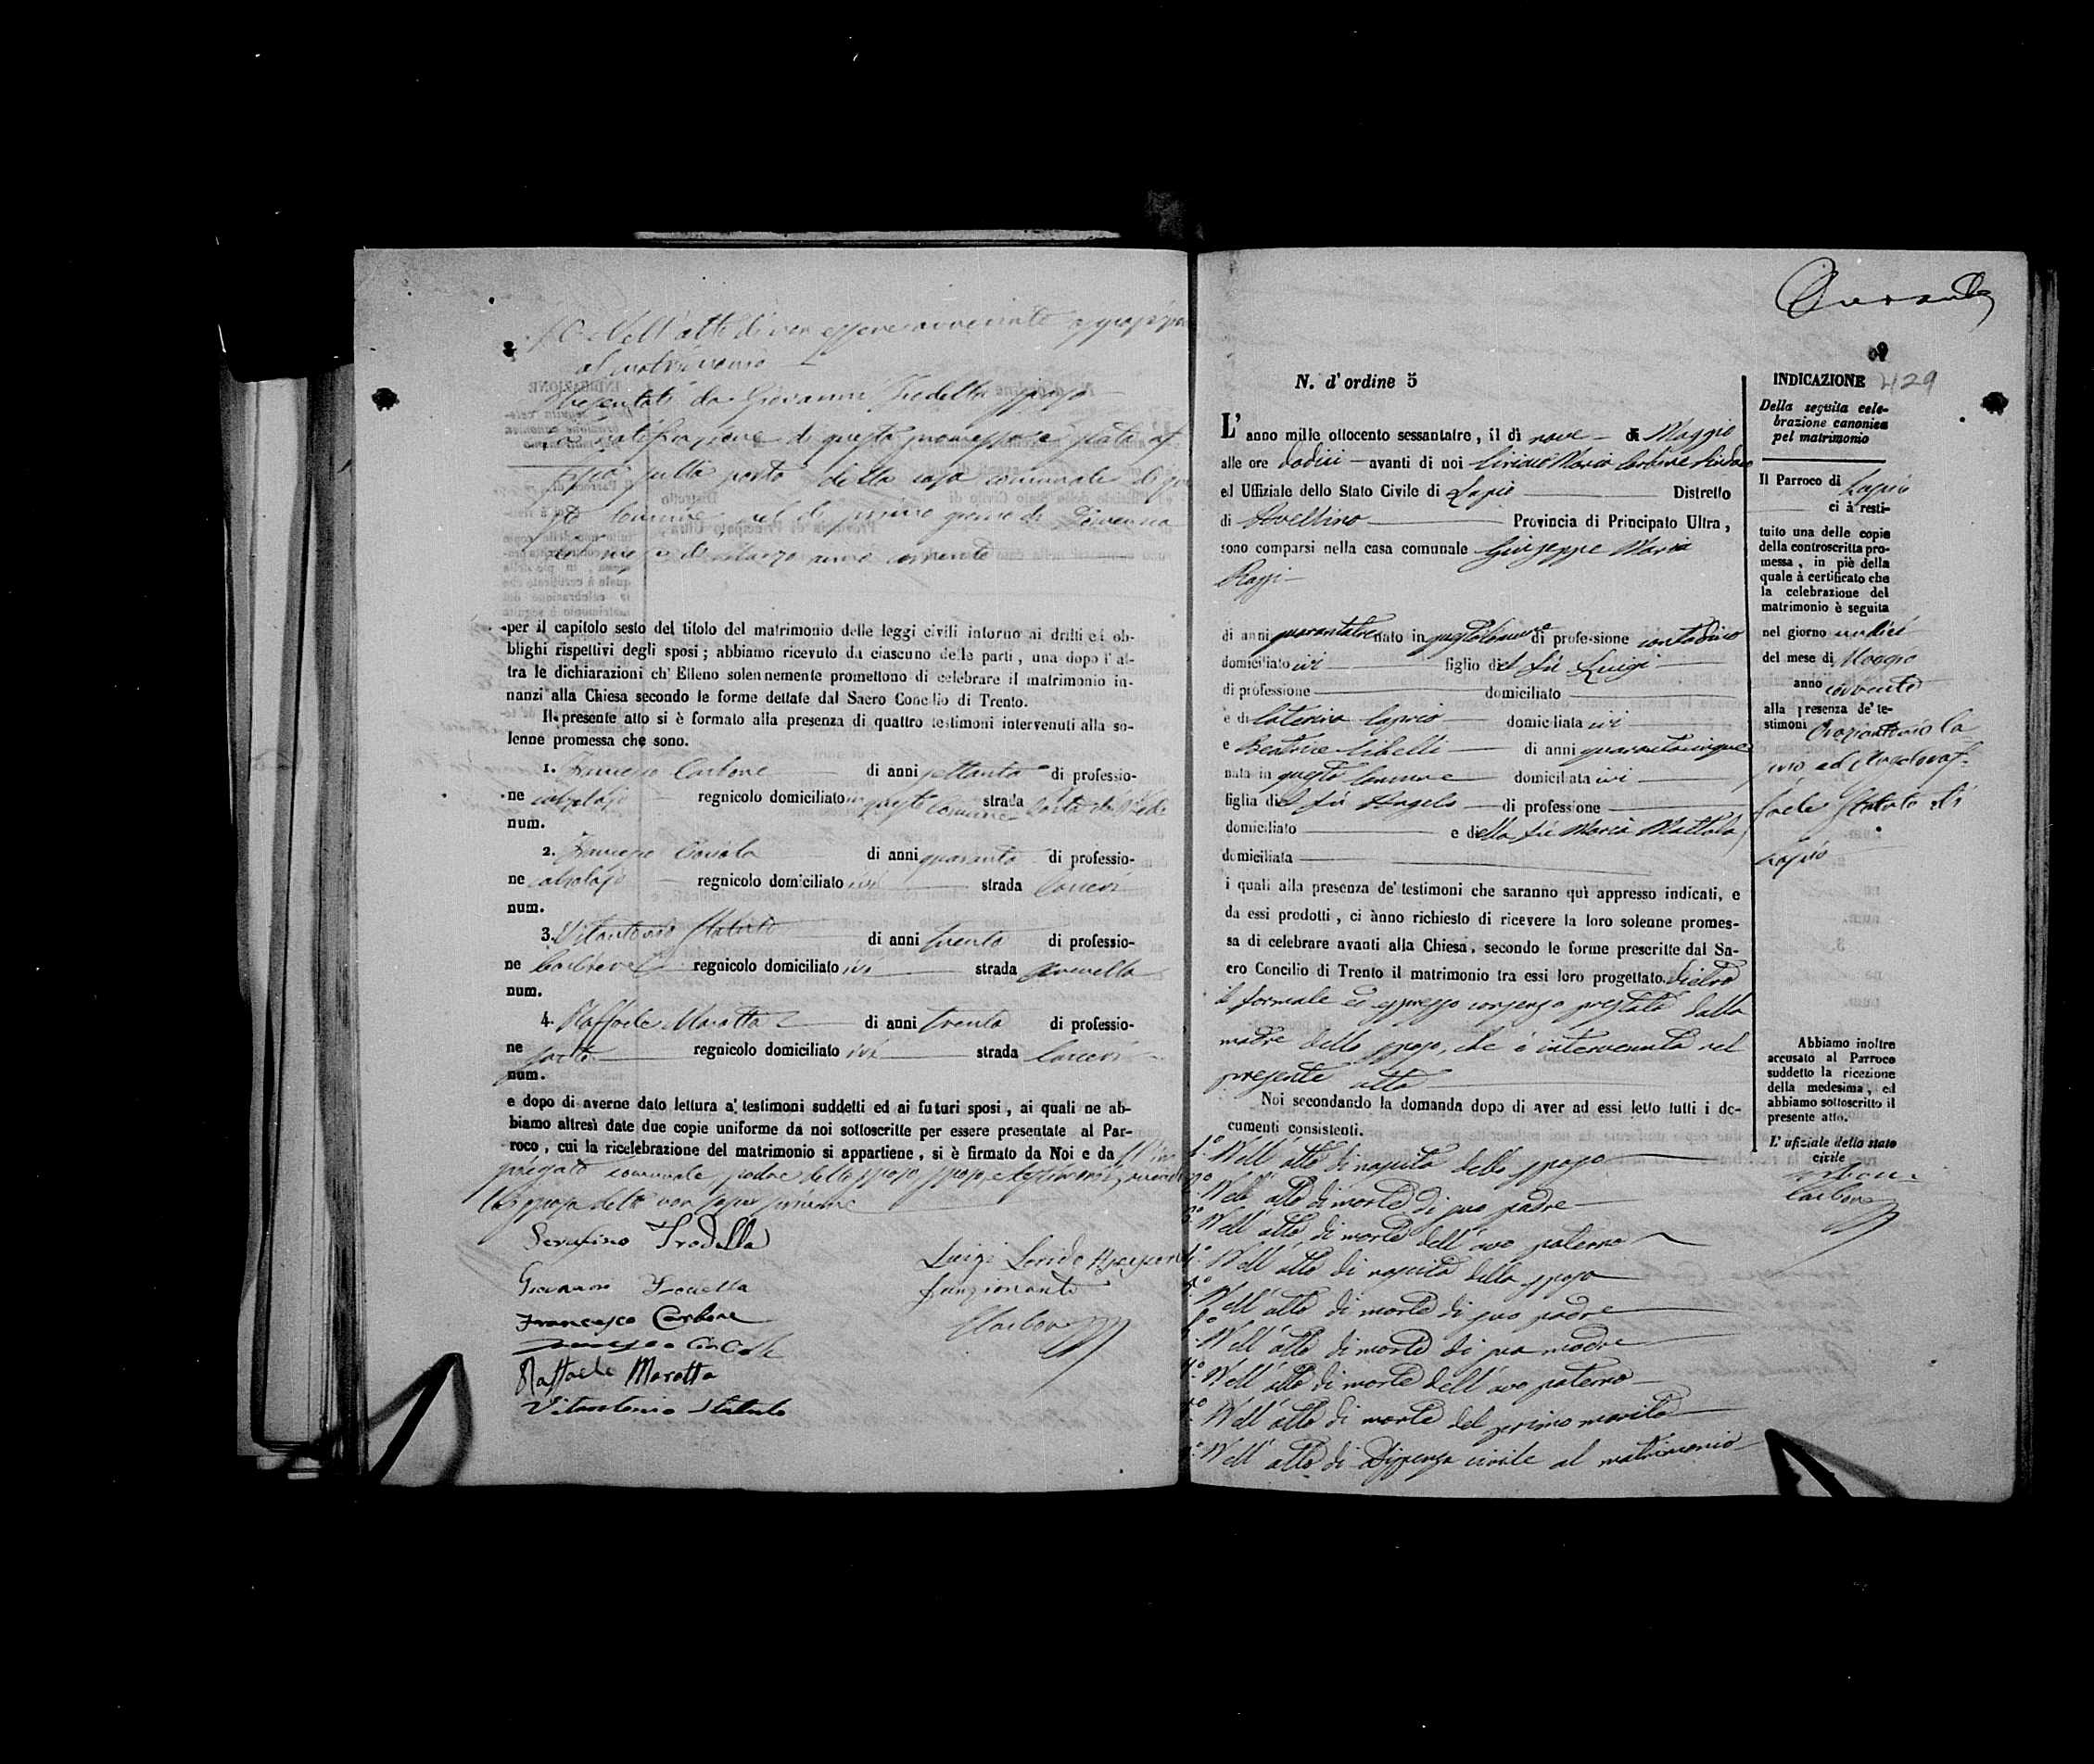 Nell'atto di non essere avvenuta opposizione
al matrimonio
Presentati da Giovanni Trodella sposo
La notificazione di questa promessa è stata af-
fissa sulla porta della casa comunale di que
sto Comune nel dì primo giorno di Domenica
di Marzo anno corrente
per il capitolo sesto del titolo del matrimonio delle leggi civili intorno ai dritti ed ob-
blighi rispettivi degli sposi; abbiamo ricevuto da ciascuno delle parti, una dopo l'al-
tra le dichiarazioni ch'Elleno solennemente promettono di celebrare il matrimonio in-
nanzi alla Chiesa secondo le forme dettate dal Sacro Concilio di Trento.
Il presente atto si è formato alla presenza di quattro testimoni intervenuti alla so-
lenne promessa che sono.
1. Francesco Carbone di anni settanta di professio-
ne calzolajo regnicolo domiciliato in questo Comune strada
num.
2. Francesco di anni quaranta di professio-
ne calzolajo regnicolo domiciliato ivi strada
num.
3. Vitantonio Staluto di anni trenta di professio-
ne regnicolo domiciliato ivi strada
num.
4. Raffaele Marotta di anni trenta di professio-
ne sarto regnicolo domiciliato ivi strada
num.
e dopo di averne dato lettura a' testimoni suddetti ed ai futuri sposi, ai quali ne ab-
biamo altresì date due copie uniforme da noi sottoscritte per essere presentate al Par-
roco, cui la ricelebrazione del matrimonio si appartiene, si è firmato da Noi e da
piegato comunale, padre dello sposo, sposo, e testimoni, avendo
la sposa detto non saper scrivere
Serafino Trodella
Giovanni Trodella
Francesco Carbone
Raffaele Marotta
Vitantonio Staluto
Luigi
funzionante
Carbone
9
429
N. d'ordine 5
L'anno mille ottocento sessantatre, il dì nove di Maggio
alle ore dodici avanti di noi Ciriaco Maria Carbone Sindaco
ed Uffiziale dello Stato Civile di Lapio Distretto
di Avellino Provincia di Principato Ultra,
sono comparsi nella casa comunale Giuseppe Maria
di anni quarantatre nato in questo Comune di professione contadino
domiciliato ivi figlio del fu Luigi
di professione domiciliato
e di Caterina Caprio domiciliata ivi
e Beatrice Cibelli di anni quarantacinque
nata in questo Comune domiciliata ivi
figlia del fu Angelo di professione
domiciliato e della fu Maria Mattola
domiciliata
i quali alla presenza de' testimoni che saranno quì appresso indicati, e
da essi prodotti, ci ànno richiesto di ricevere la loro solenne promes-
sa di celebrare avanti alla Chiesa, secondo le forme prescritte dal Sa-
cro Concilio di Trento il matrimonio tra essi loro progettato. dietro
il formale ed espresso consenso prestato dalla
madre dello sposo, che è intervenuta nel
presente atto
Noi secondando la domanda dopo di aver ad essi letto tutti i do-
cumenti consistenti.
1º Nell'atto di nascita dello sposo
2º Nell'atto di morte di suo padre
3º Nell'atto di morte dell'avo paterno
4º Nell'atto di nascita della sposa
5º Nell'atto di morte di suo padre
6º Nell'atto di morte di sua madre
7º Nell'atto di morte dell'avo paterno
8º Nell'atto di morte del primo marito
9º Nell'atto di dispensa civile al matrimonio
INDICAZIONE
Della seguita cele-
brazione canonica
pel matrimonio
Il Parroco di Lapio
ci à resti-
tuito una delle copie
della controscritta pro-
messa, in piè della
quale à certificato che
la celebrazione del
matrimonio è seguita
nel giorno undici
del mese di Maggio
anno corrente
alla presenza de' te-
stimoni
ed Angelraf-
faele Staluto di
Lapio
Abbiamo inoltre
accusato al Parroco
suddetto la ricezione
della medesima, ed
abbiamo sottoscritto il
presente atto.
L'ufiziale dello stato
civile
Carbone